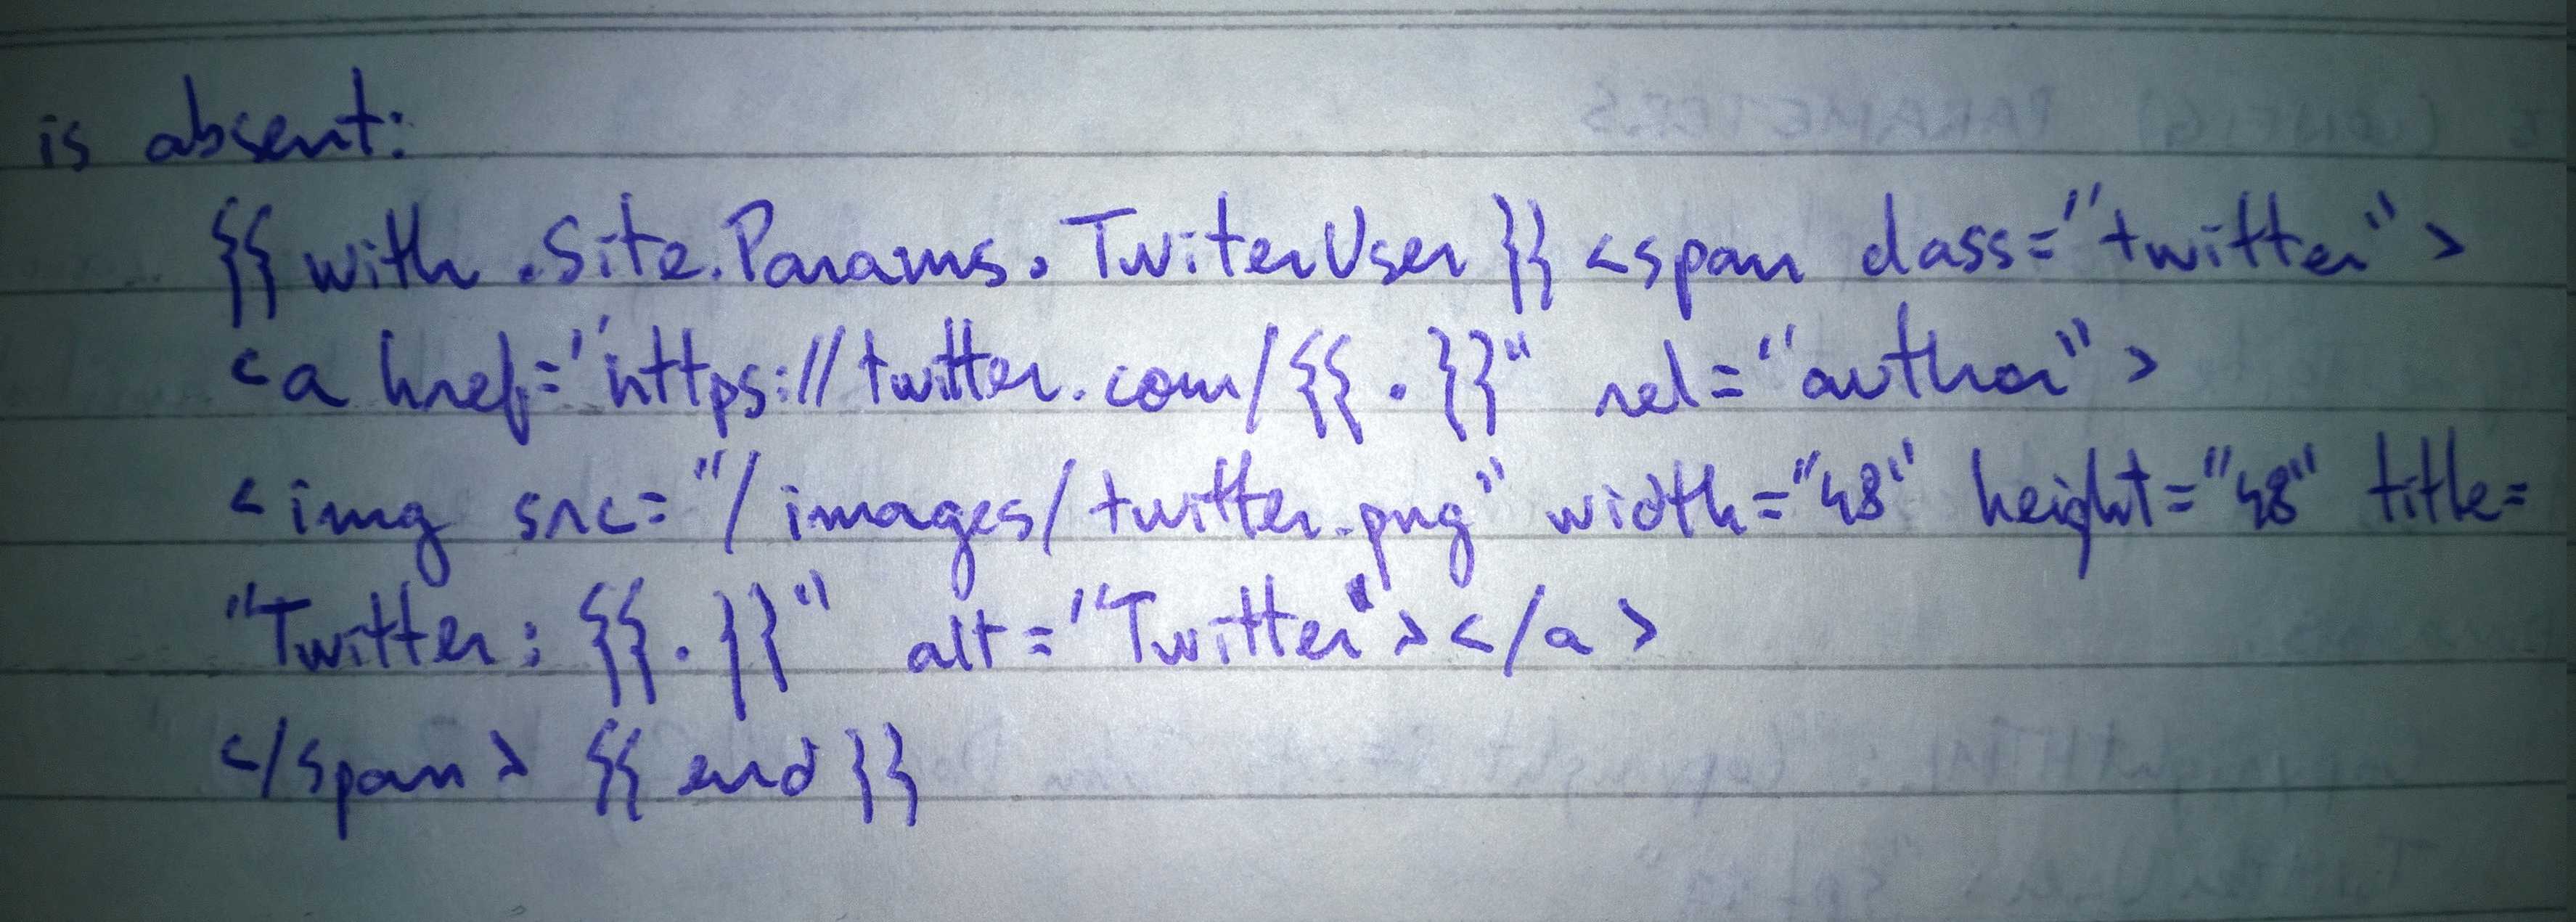 is absent:
{{ with .Site.Params.TwiterUser }} <span class="twitter">
<a href="https://twitter.com/{{.}}" rel="author">
<img src="/images/twitter.png" width="48" height="48" title=
"Twitter: {{.}}" alt="Twitter"></a>
</span> {{ end }}